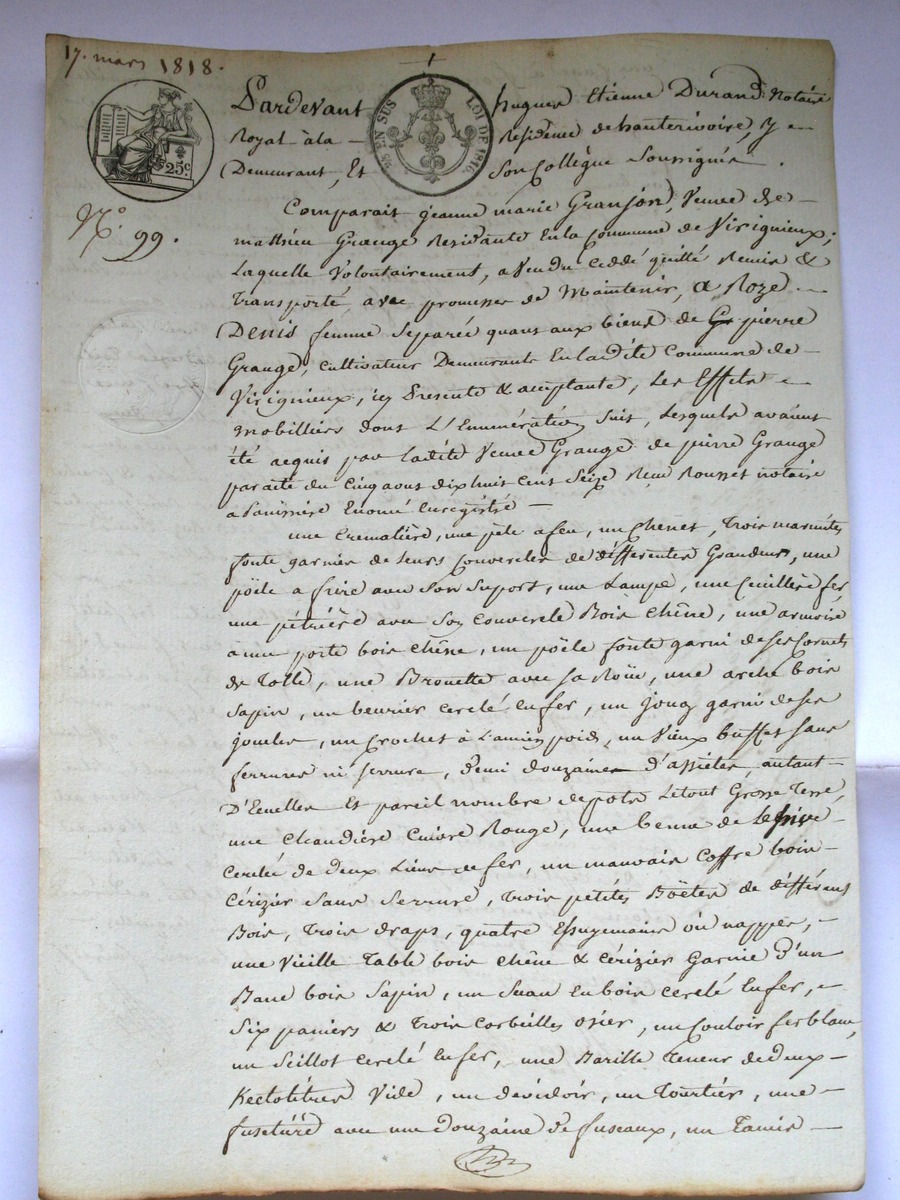 17. mars 1818.
25c
25 EN SUS
LOI DE 1816.
N.º 99.
Pardevant hugues Etienne Durand Notaire
Royal à la Résidence de hauterivoire, y
Demeurant, Et Son Collègue Soussignés.
Comparait jeanne marie Granjon, Veuve de
mathieu Grange Residante En la Commune de Virignieux;
Laquelle Volontairement, a Vendu Ceddé quitté Remis &
Transporté, avec promesses de Maintenir, a Roze
Denis femme Séparée quant aux biens de pierre
Grange, cultivateur Demeurante En la dite Commune de
Virignieux, icy Présente & acceptante, Les Effets
mobilliers dont L'Enumération Suit, Lesquels avaient
été acquis par la dite Veuve Grange de pierre Grange
par acte du Cinq aout dix huit Cent Seize Reçu Rousset notaire
a Enomé Enregistré
une Cremalière, une pèle a feu, un Chenet, Trois marmites
fonte garnies de Leurs Couvercles de différentes Grandeurs, une
pöële a frire avec Son Suport, une Lampe, une Cuillère fer
une pétrière avec Son Couvercle Bois Chêne, une armoire
a une porte bois Chêne, un pöële fonte garni de Ses Cornets
de Tolle, une Brouette avec Sa Roüe, une arche bois
Sapin, un beurier Cerclé En fer, un joug garni de Ses
joucles, un Crochet à poids, un Vieux buffet Sans
ferrures ni Serrure, demi douzaine d'assietes, autant
D'Ecuelles Et pareil nombre de pots Le tout Grosse Terre,
une Chaudière Cuivre Rouge, une benne de Lessive
Cerclée de Deux Liens de fer, un mauvais Coffre bois
Cérizier Sans Serrure, Trois petites Böëtes de différents
Bois, Trois draps, quatre Essuyemains où nappes,
une Vieille Table bois Chêne & Cérizier Garnie d'un
Banc bois Sapin, un En bois cerclé En fer,
Six paniers & Trois Corbeilles osier, un Couloir fer blanc,
un Seillot Cerclé En fer, une Barille Teneur de Deux
hectolitres Vide, un dévidoir, un Tourtier, une
avec une Douzaine de fuseaux, un Tamis